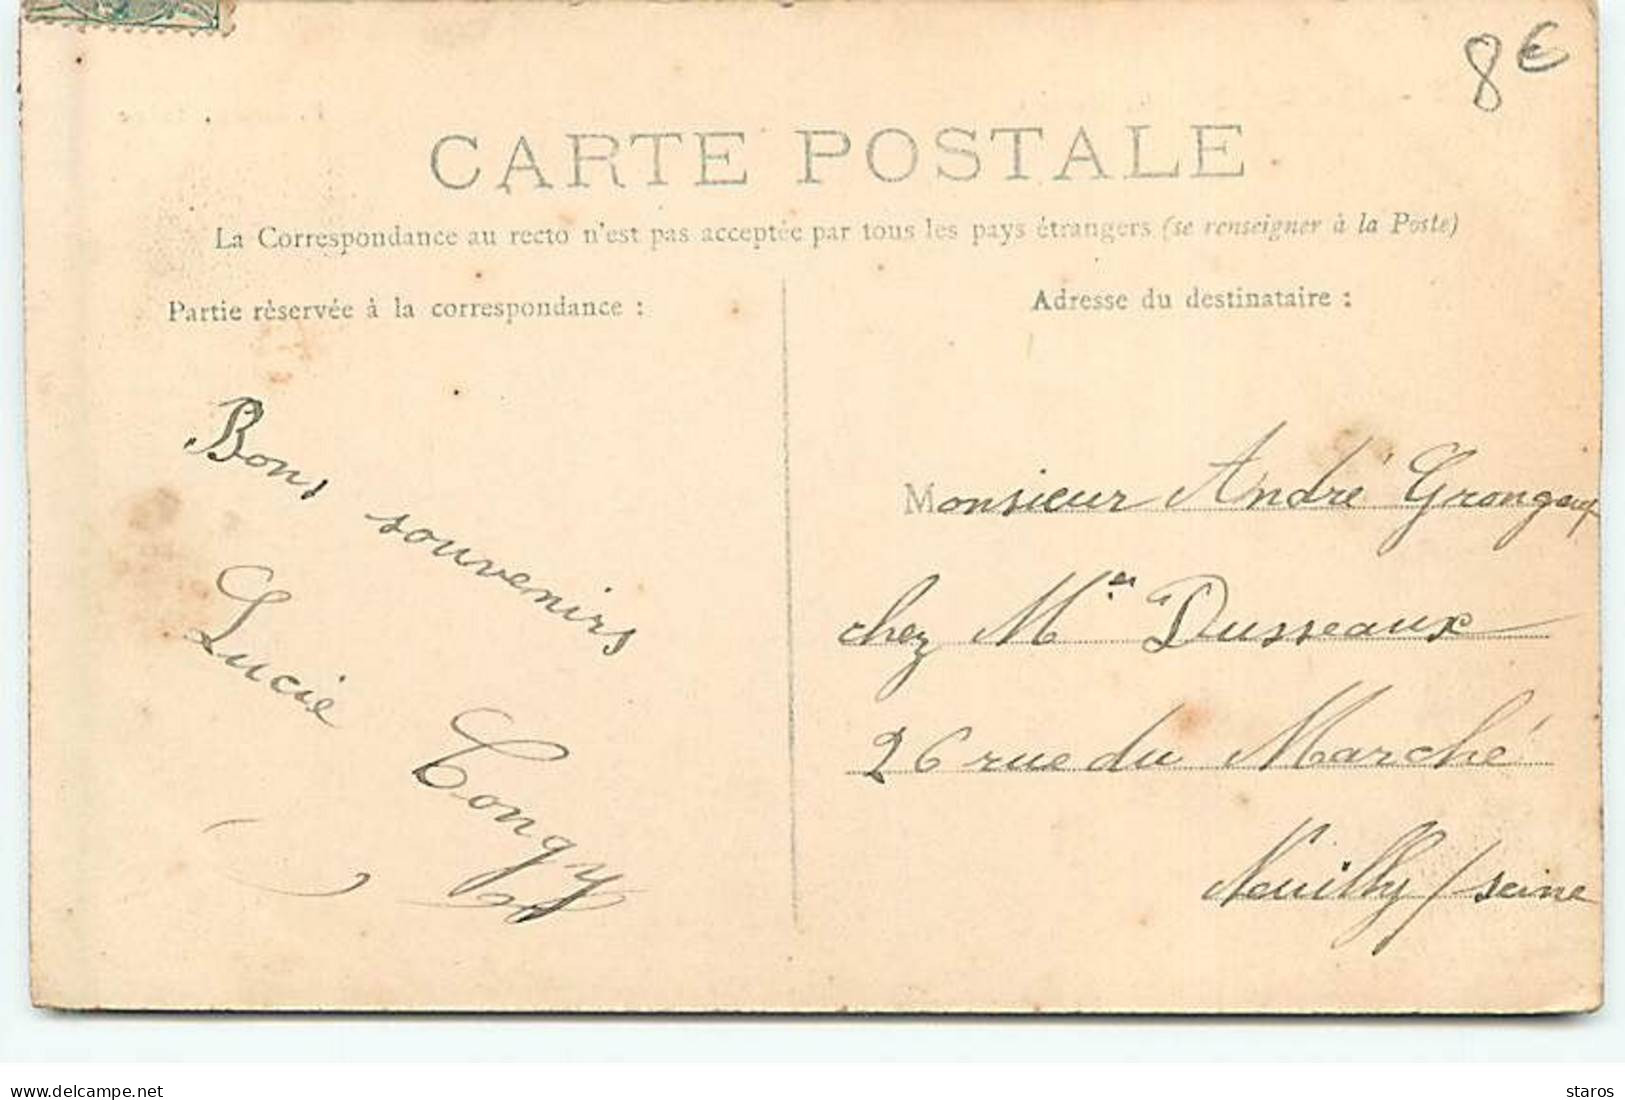 8€
CARTE POSTALE
La Correspondance au recto n'est pas acceptée par tous les pays étrangers (se renseigner à la Poste)
Partie rèservée à la correspondance :
Bons souvenirs
Lucie Congy
Adresse du destinataire :
Monsieur André
chez Mme Dusseaux
26 rue du Marché
Neuilly / seine
www.delcampe.net
staros